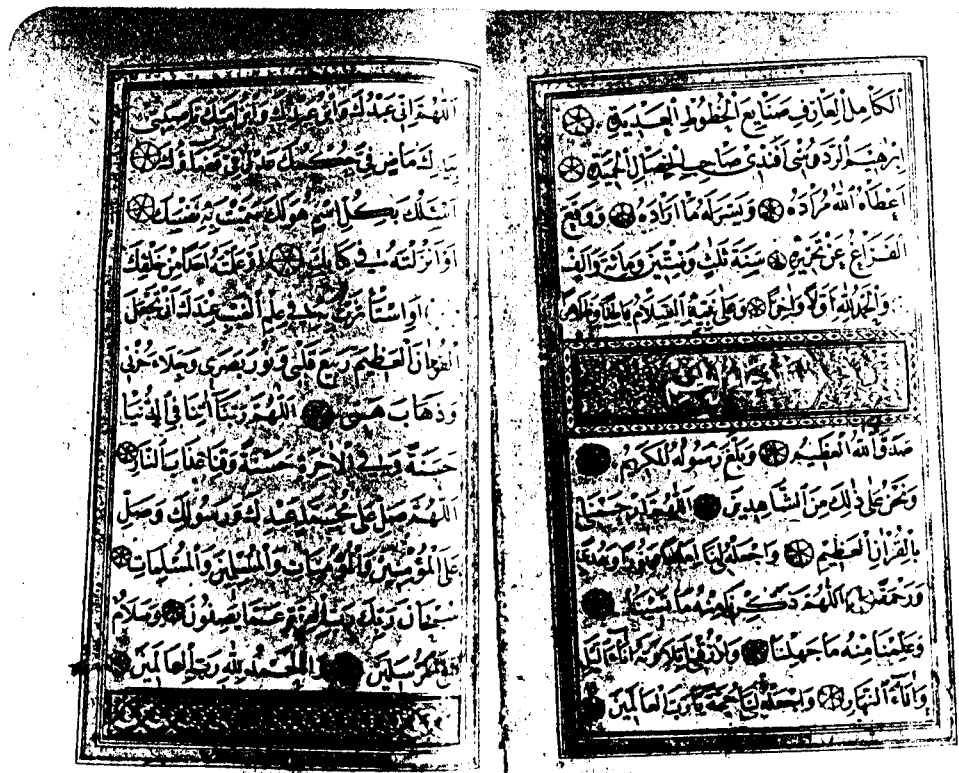 الكامل العارف صنايع الخطوط العديدة
ابرهيم الردوسى افندى صاحب الخصال الحميدة
اعطاه الله مراده ويسر له ما اراده ووقع
الفراغ عن تحريره سنة ثلث وستين ومائة والف
والحمد لله اولا واخرا وعلى نبيه السلام
صدق الله العظيم وبلغ رسوله الكريم
ونحن على ذلك من الشاهدين اللهم ارحمنا
بالقران العظيم واجعله لنا اماما ونورا وهدى
ورحمة اللهم ذكرنا منه ما نسينا
وعلمنا منه ما جهلنا وارزقنا تلاوته اناء الليل
واناء النهار واجعله لنا حجة يا رب العالمين
اللهم انى عبدك وابن عبدك وابن امتك ناصيتى
بيدك ماض فى حكمك عدل فى قضاؤك
اسئلك بكل اسم هو لك سميت به نفسك
او انزلته فى كتابك او علمته احدا من خلقك
او استأثرت به فى علم الغيب عندك ان تجعل
القران العظيم ربيع قلبى ونور بصرى وجلاء حزنى
وذهاب همى اللهم ربنا اتنا فى الدنيا
حسنة وفى الاخرة حسنة وقنا عذاب النار
اللهم صل على محمد عبدك ورسولك وصل
على المؤمنين والمؤمنات والمسلمين والمسلمات
سبحان ربك رب العزة عما يصفون وسلام
على المرسلين والحمد لله رب العالمين